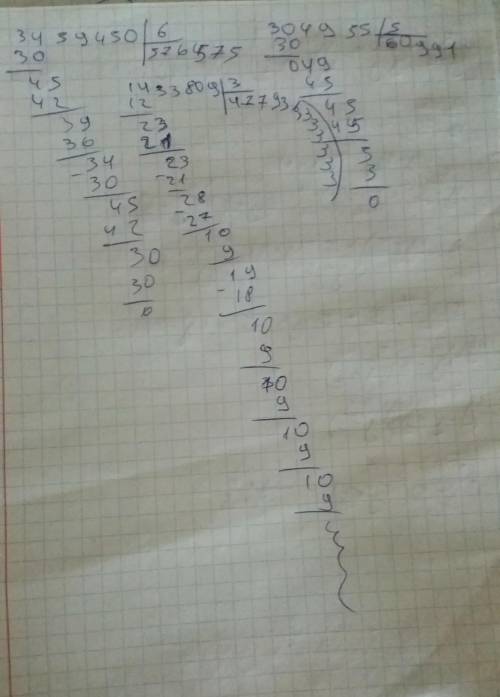 3459450 6
30 576575
45
42
39
36
-34
30
45
42
30
30
0
1433809 3
12 477936
23
21
23
-21
28
-27
10
9
19
-18
10
9
10
9
10
9
10
9
304955 5
30 60991
049
45
45
45
5
3
0
33333